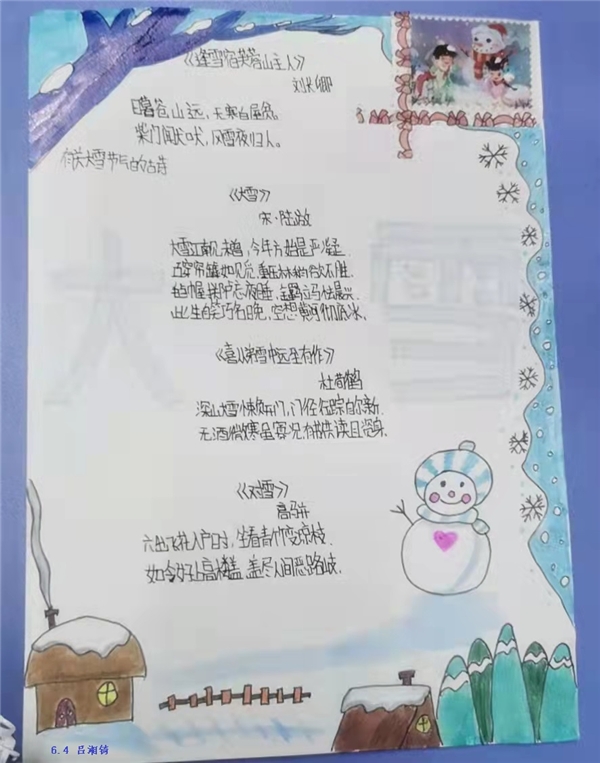 《逢雪宿芙蓉山主人》
刘长卿
日暮苍山远,天寒白屋贫。
柴门闻犬吠,风雪夜归人。
有关大雪节气的古诗
《大雪》
宋·陆游
大雪江南见未曾,今年方始是严凝
巧穿帘罅如相觅,重压林梢欲不胜.
毡幄掷卢忘夜睡,金羁立马怯晨兴.
此生自笑功名晚,空想黄河彻底冰.
《喜从弟雪中远至有作》
杜荀鹤
深山大雪懒开门,门径行踪自尔新.
无酒御寒虽寡况,有书供读且资身.
《对雪》
高骈
六出飞花入户时,坐看青竹变琼枝.
如今好上高楼望,盖尽人间恶路歧.
6.4 吕湘锜